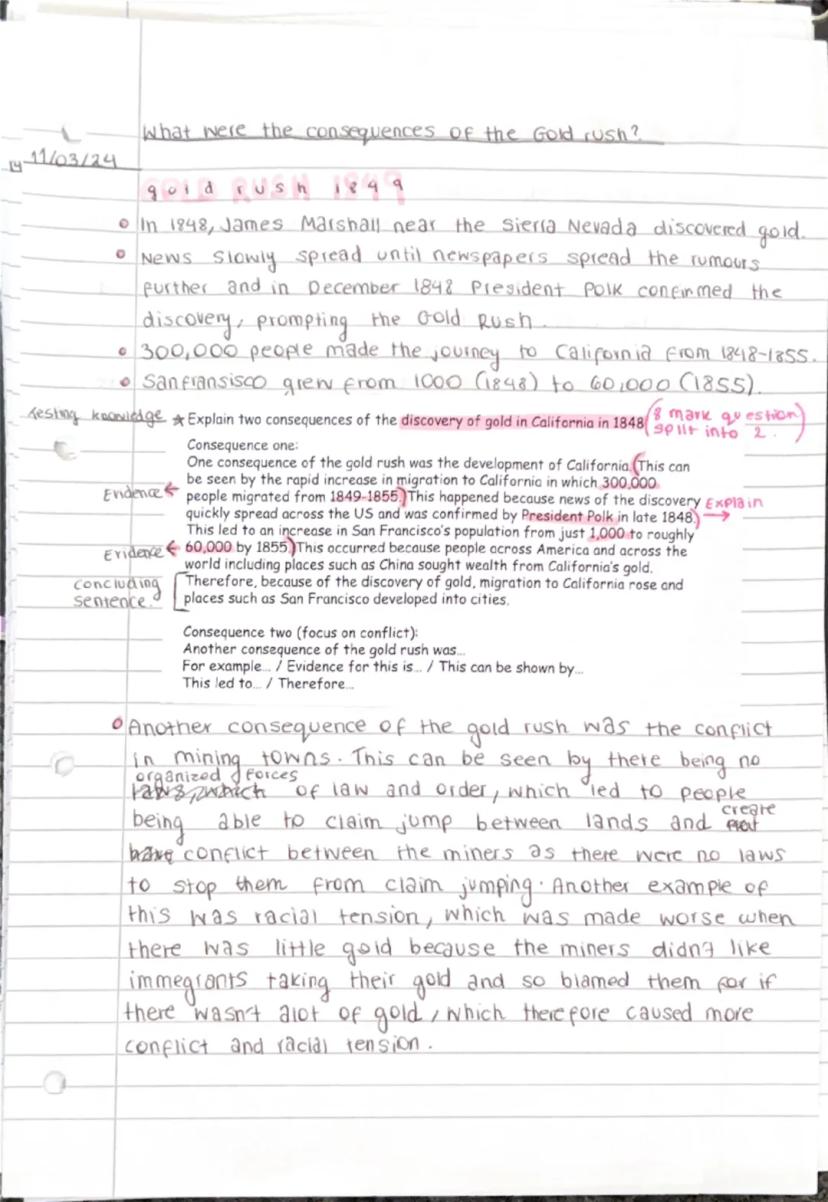 What were the consequences of the Gold rush?
11/03/24
gold rush 1849
In 1848, James Marshall near the Sierra Nevada discovered gold.
News slowly spread until newspapers spread the rumours
further and in December 1848 President Polk confirmed the
discovery, prompting the Gold Rush.
300,000 people made the journey to California from 1848-1855.
Sanfransisco grew from 1000 (1848) to 60,000 (1855).
testing knowledge ★ Explain two consequences of the discovery of gold in California in 1848 (8 mark question
split into 2.)
Consequence one:
One consequence of the gold rush was the development of California. (This can
be seen by the rapid increase in migration to California in which 300,000
Evidence ← people migrated from 1849-1855.) This happened because news of the discovery Explain
quickly spread across the US and was confirmed by President Polk in late 1848.) →
This led to an increase in San Francisco's population from just 1,000 to roughly
Evidence ← 60,000 by 1855.) This occurred because people across America and across the
world including places such as China sought wealth from California's gold.
concluding Therefore, because of the discovery of gold, migration to California rose and
sentence. places such as San Francisco developed into cities.
Consequence two (focus on conflict):
Another consequence of the gold rush was...
For example... / Evidence for this is... / This can be shown by...
This led to... / Therefore...
Another consequence of the gold rush was the conflict
in mining towns. This can be seen by there being no
organized forces
laws, which of law and order, which led to people
create
being able to claim jump between lands and
have conflict between the miners as there were no laws
to stop them from claim jumping. Another example of
this was racial tension, which was made worse when
there was little gold because the miners didn't like
immegrants taking their gold and so blamed them for if
there wasn't alot of gold, which therefore caused more
conflict and racial tension.